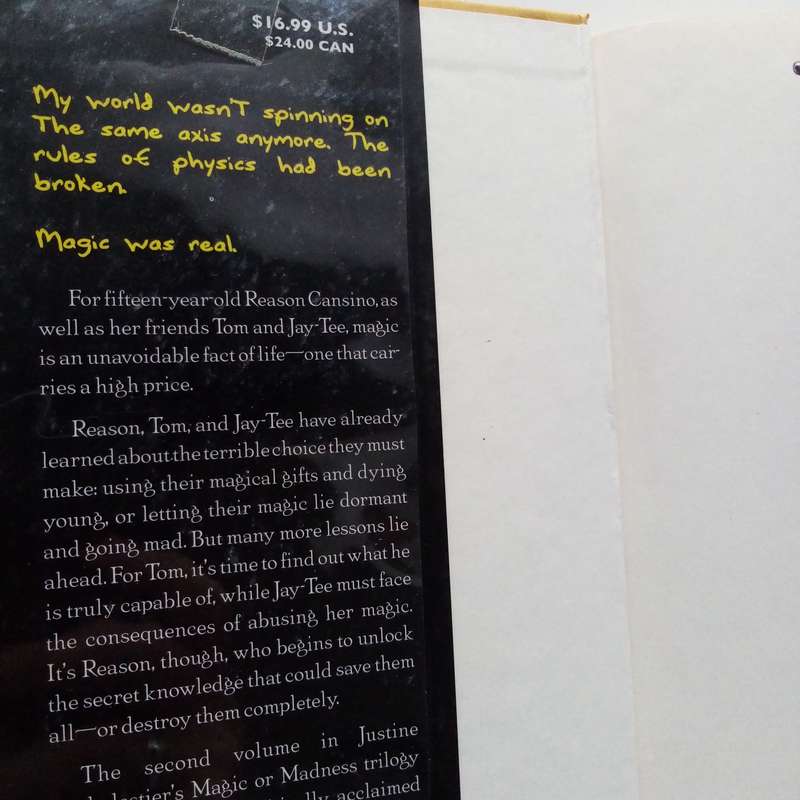 $16.99 U.S.
$24.00 CAN
My world wasn't spinning on
The same axis anymore. The
rules of physics had been
broken.
Magic was real.
For fifteen-year-old Reason Cansino, as
well as her friends Tom and Jay-Tee, magic
is an unavoidable fact of life—one that car-
ries a high price.
Reason, Tom, and Jay-Tee have already
learned about the terrible choice they must
make: using their magical gifts and dying
young, or letting their magic lie dormant
and going mad. But many more lessons lie
ahead. For Tom, it's time to find out what he
is truly capable of, while Jay-Tee must face
the consequences of abusing her magic.
It's Reason, though, who begins to unlock
the secret knowledge that could save them
all—or destroy them completely.
The second volume in Justine
Magic or Madness trilogy
acclaimed